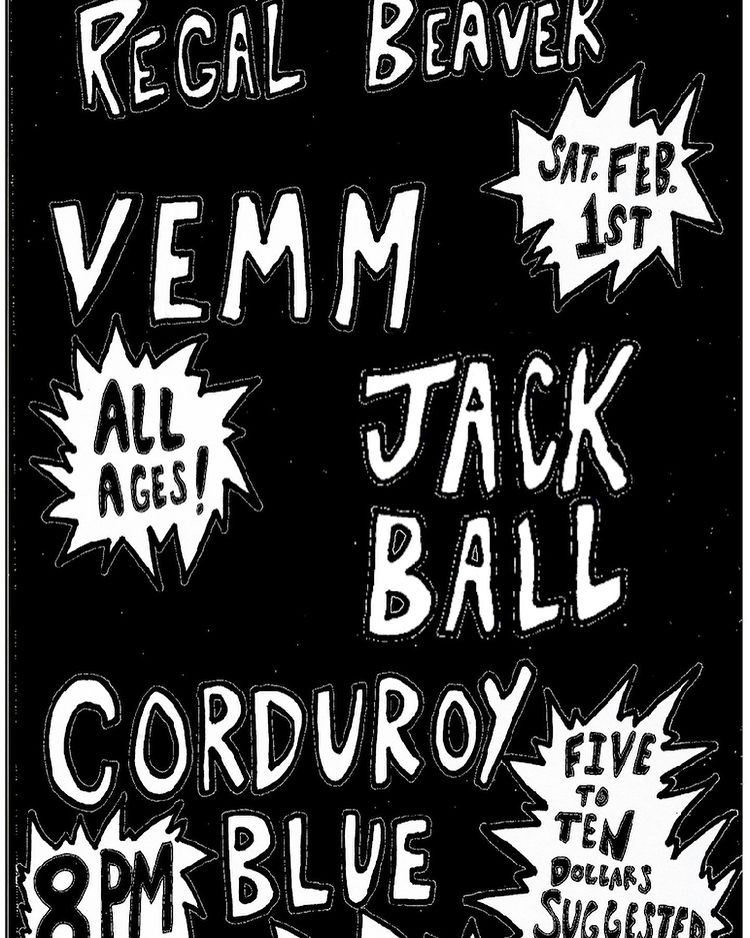 REGAL BEAVER
SAT. FEB.
1ST
VEMM
ALL
AGES!
JACK
BALL
CORDUROY
BLUE
FIVE
TO
TEN
DOLLARS
SUGGESTED
8PM